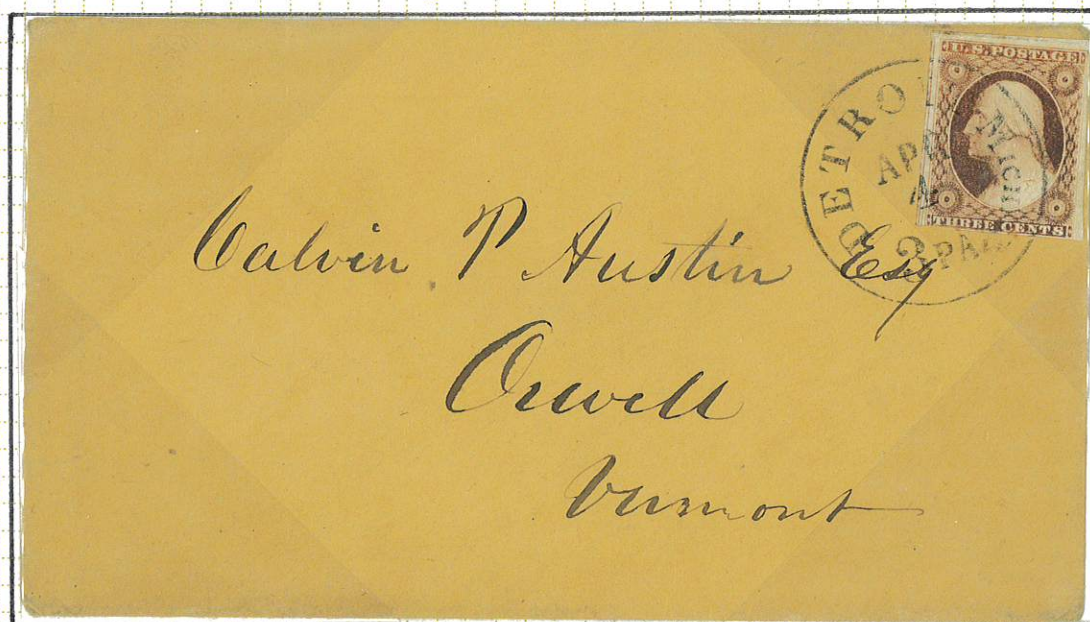 U.S. POSTAGE
THREE CENTS
DETROIT Mich
APR
4
3 PAID
Calvin P Austin Esq
Orwell
Vermont